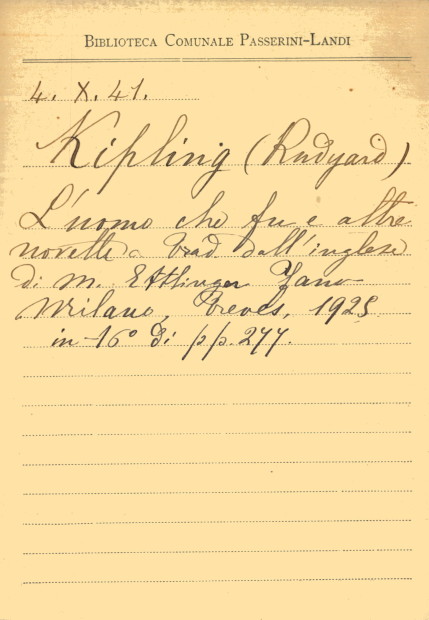 BIBLIOTECA COMUNALE PASSERINI-LANDI
4. X. 41.
Kipling (Rudyard)
L'uomo che fu e altre
novelle trad. dall'inglese
di M. Ettlinger Fano
Milano, Treves, 1925
in -16° di pp. 277.